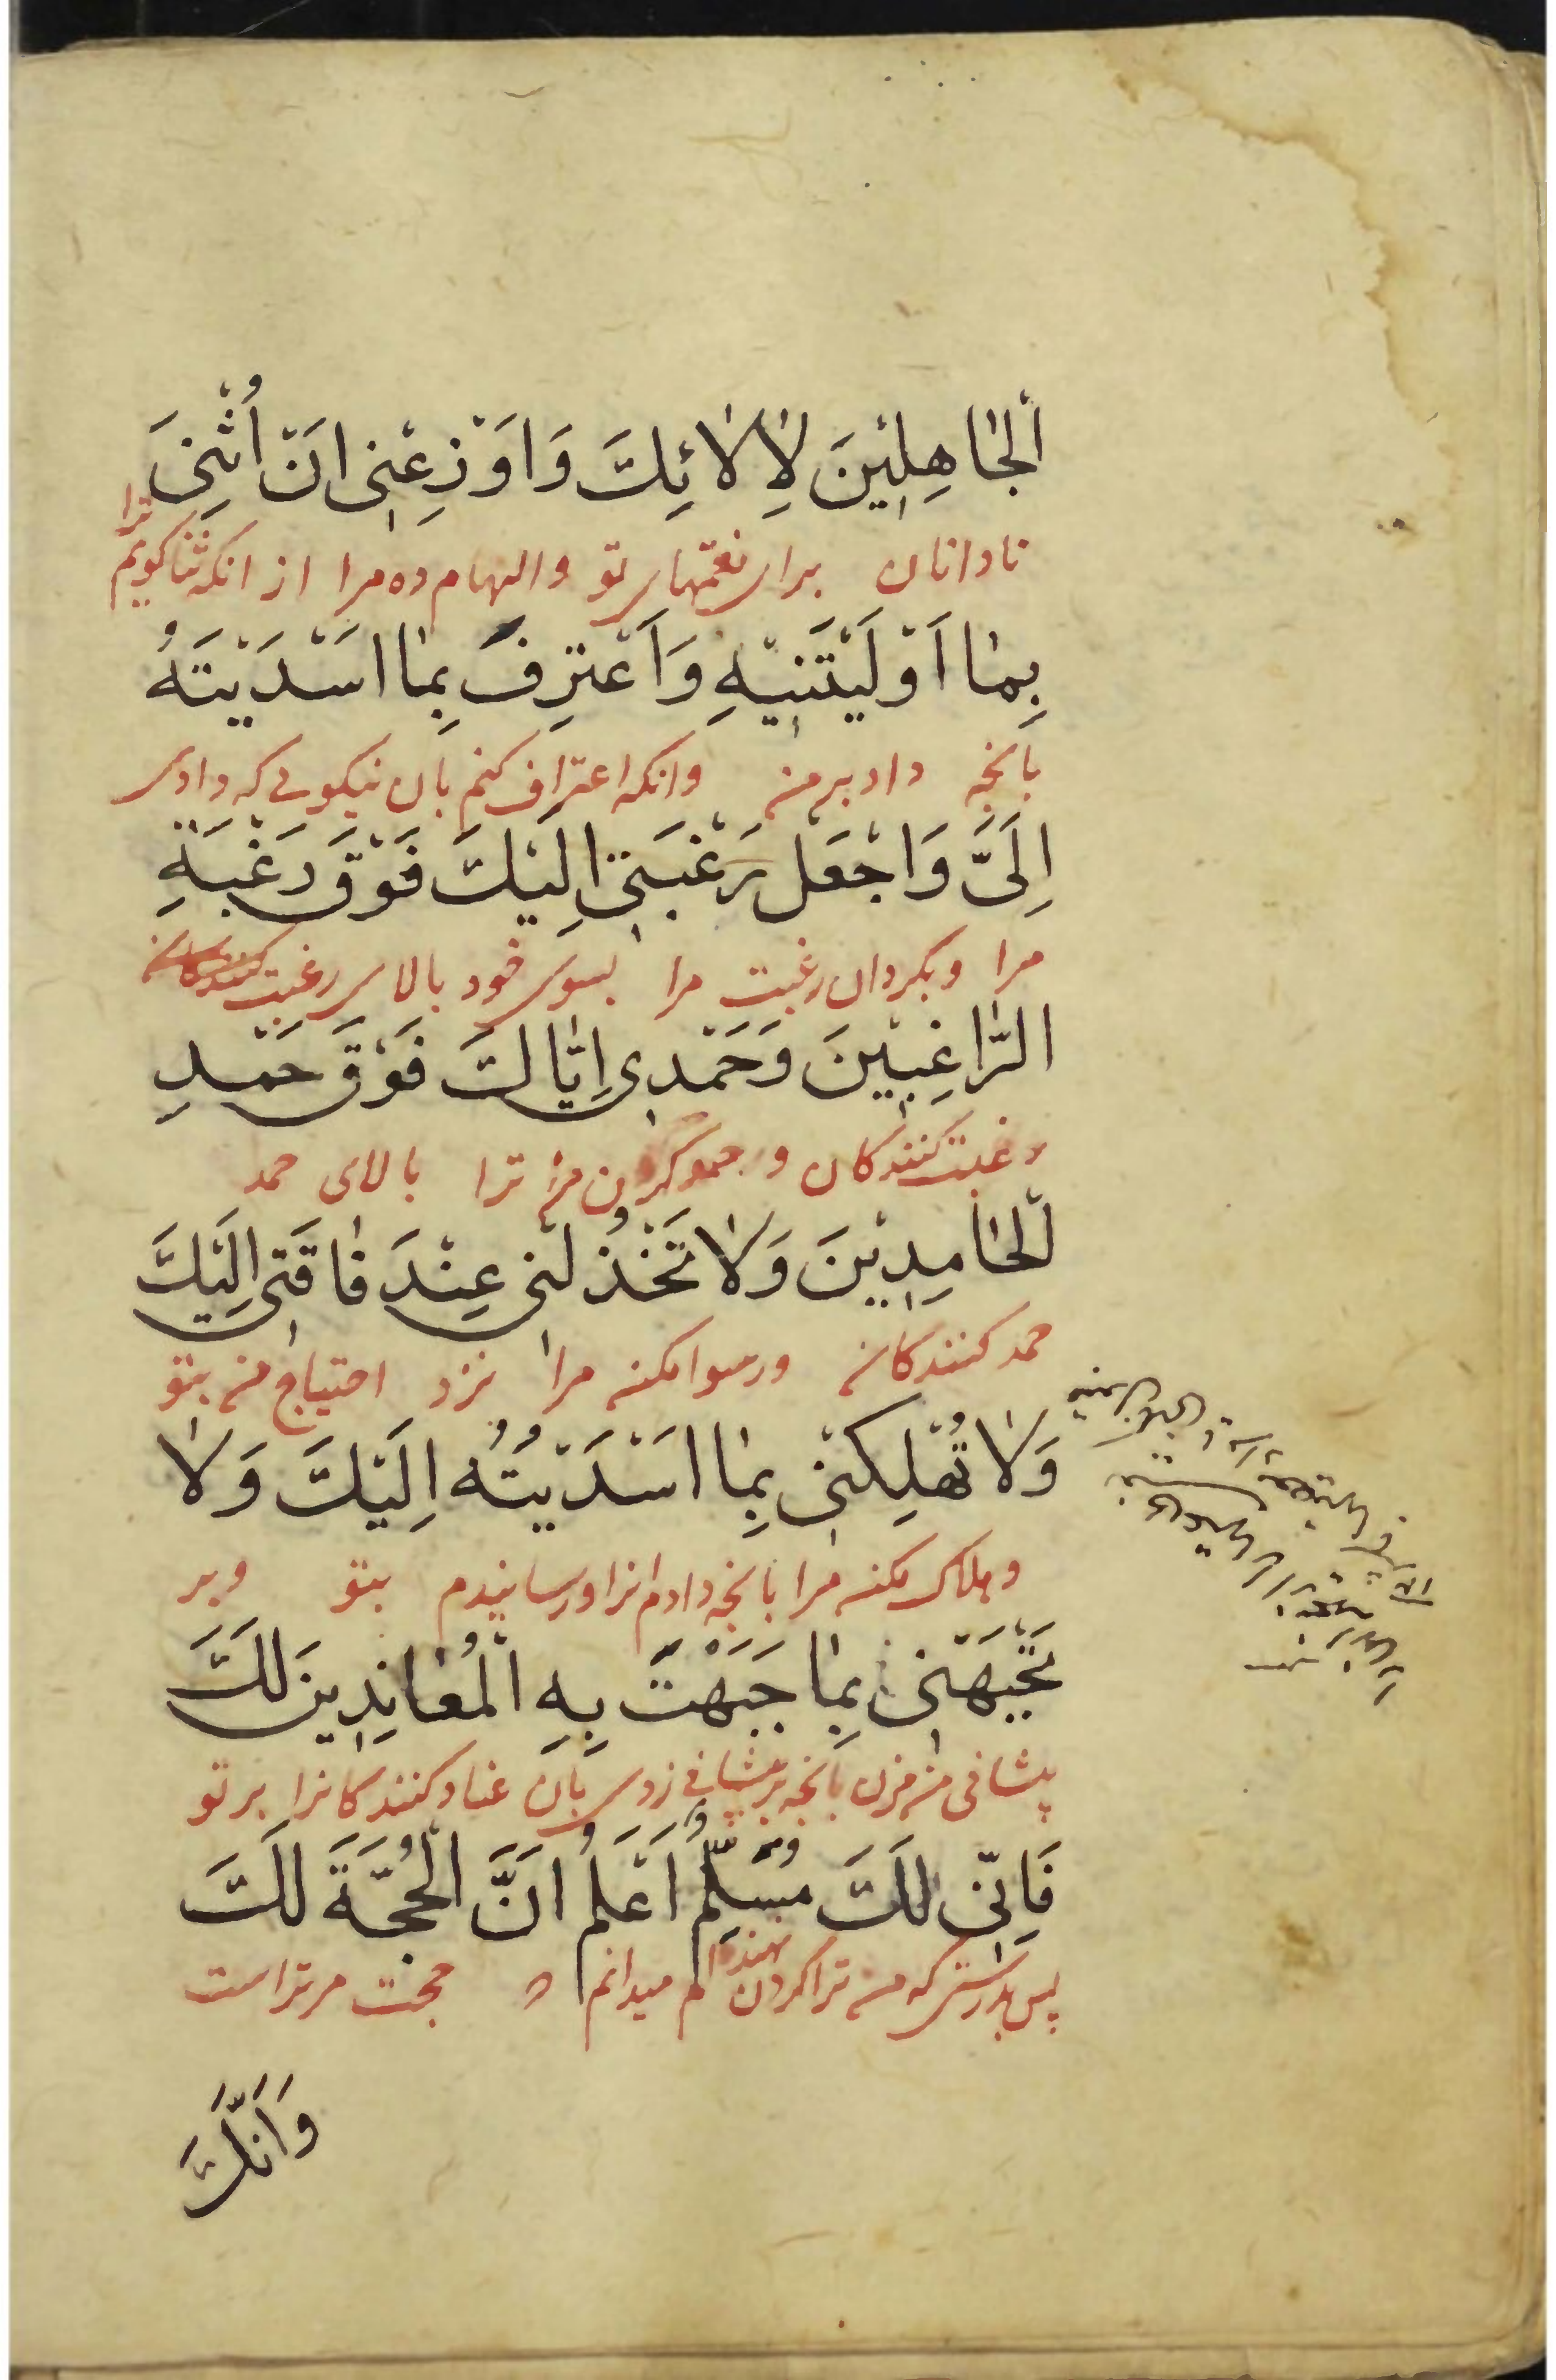 اَلْجٰاهِلِیْنَ لِاٰلٰائِكَ وَاَوْزِعْنِی اَنْ اُثْنِیَ
نادانان برای نعمتهای تو والهام ده مرا از انکه ثنا کویم ترا
بِمٰا اَوْلَیْتَنِیْهِ وَاَعْتَرِفَ بِمٰا اَسْدَیْتَهُ
بانچه داد بر من وانکه اعتراف کنم بان نیکویی که دادی
اِلَیَّ وَاجْعَلْ رَغْبَتِیْ اِلَیْكَ فَوْقَ رَغْبَةِ
مرا وبکردان رغبت مرا بسوی خود بالای رغبت
الرّٰاغِبِیْنَ وَحَمْدِی اِیّٰاكَ فَوْقَ حَمْدِ
رغبت کنندکان و حمد کردن من ترا بالای حمد
اَلْحٰامِدِیْنَ وَلٰا تَخْذُلْنِی عِنْدَ فٰاقَتِی اِلَیْكَ
حمد کنندکان ورسوا مکن مرا نزد احتیاج من بتو
وَلٰا تُهْلِكْنِی بِمٰا اَسْدَیْتُهُ اِلَیْكَ وَلٰا
وهلاک مکن مرا بانچه دادم انرا ورسانیدم بتو وبر
تَجْبَهْنِی بِمٰا جَبَهْتَ بِهِ الْمُعٰانِدِینَ لَكَ
پیشانی من مزن بانچه بر پیشانی زدی بان عناد کنندکانرا بر تو
فَاِنِّی لَكَ مُسَلِّمٌ اَعْلَمُ اَنَّ الْحُجَّةَ لَكَ
پس بدرستی که من ترا کردن نهنده ام میدانم حجت مر تراست
وَاَنَّكَ